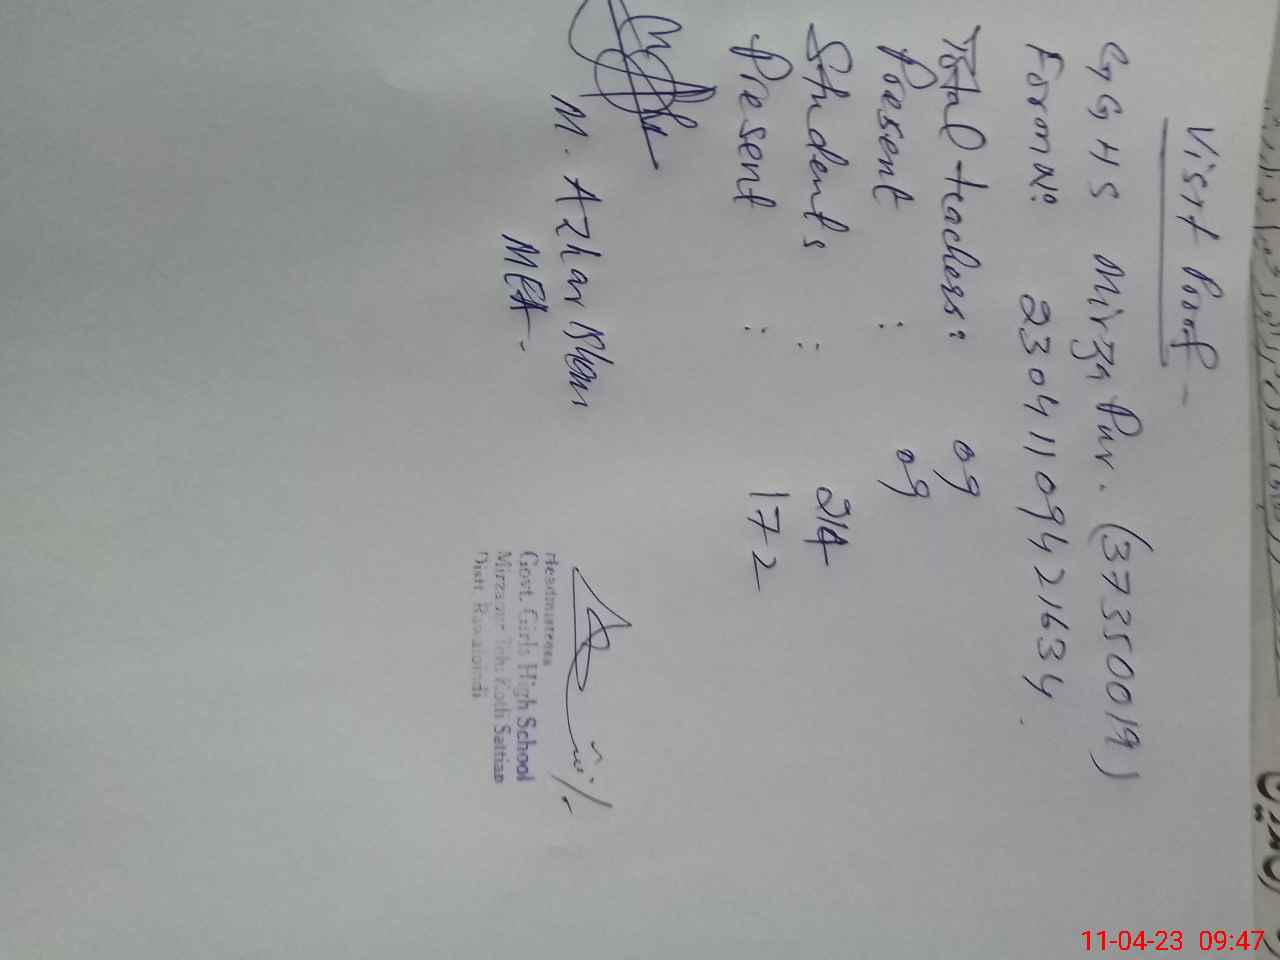 Visit Proof
GGHS Mirza Pur. (37350019)
Form No: 23041109421634.
Total teachers: 09
Present : 09
Students : 214
Present : 172
M. Azhar Islam
MEA.
Headmistress
Govt. Girls High School
Mirzapur Teh: Kotli Sattian
Distt. Rawalpindi
11-04-23 09:47